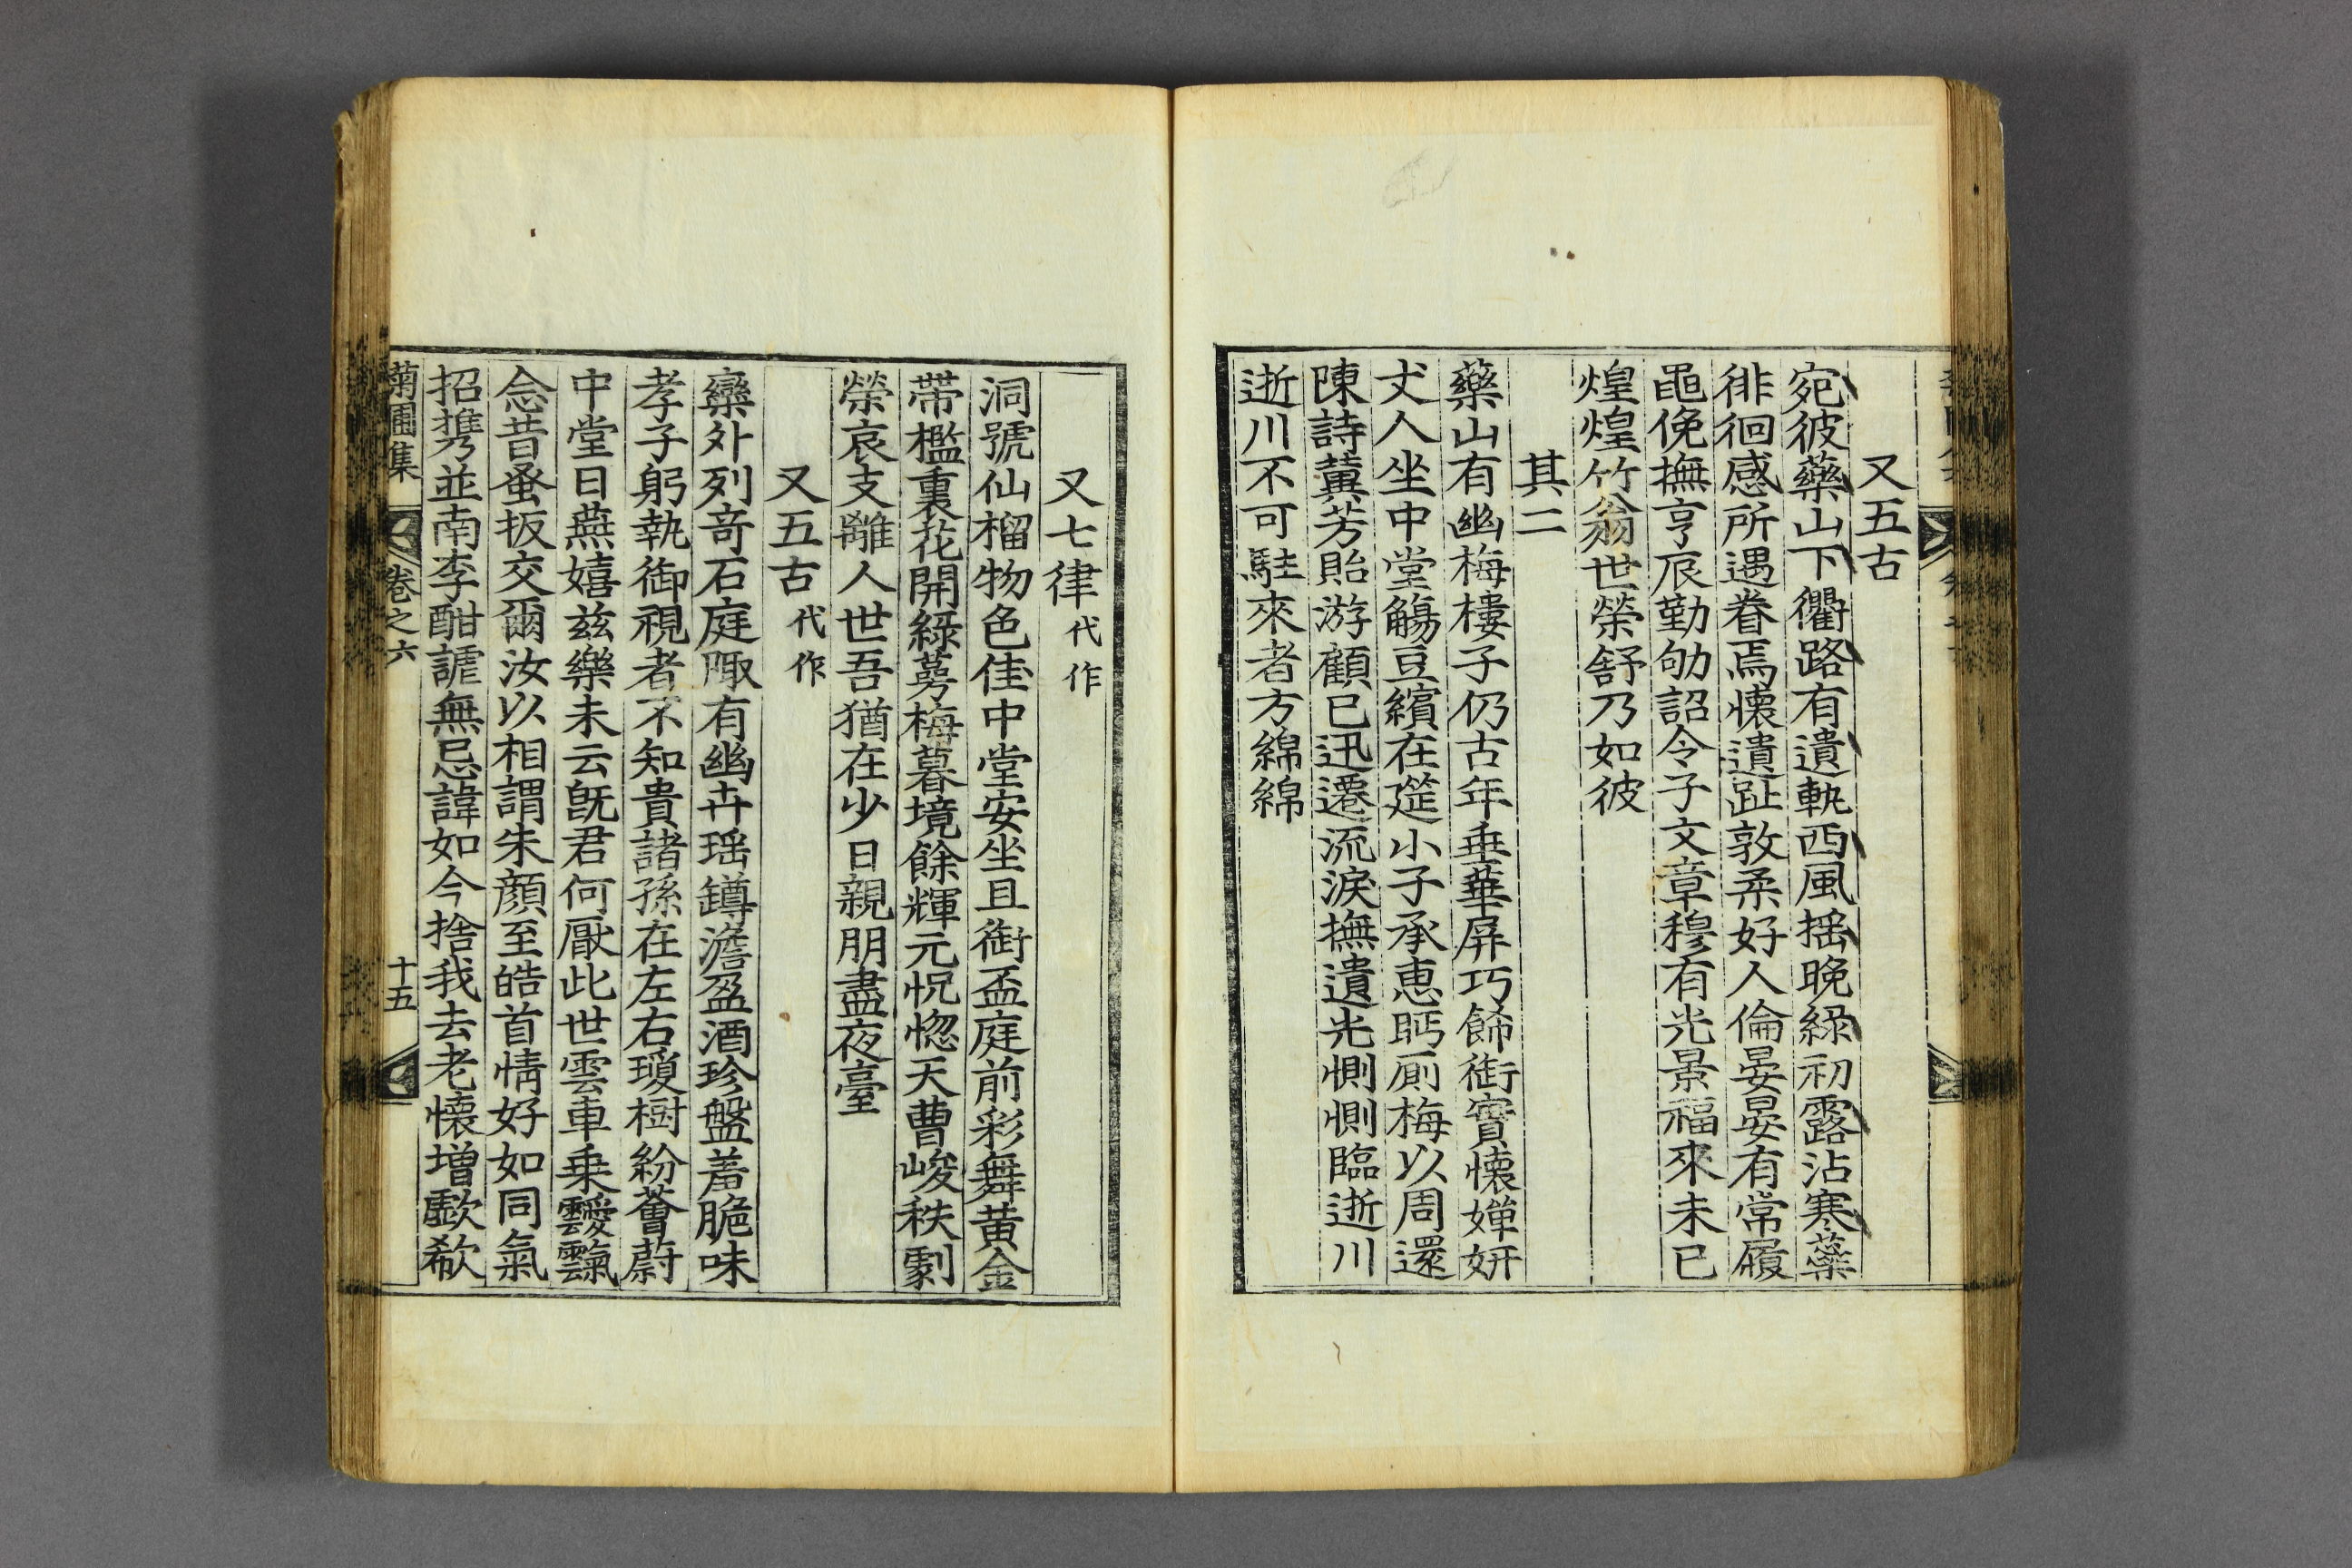 又五古
宛彼藥山下衢路有遺軌西風搖晩綠初露沾寒藥
徘徊感所遇眷焉懷遺趾敦柔好人倫晏晏有常履
黽俛撫亨辰勤劬詔令子文章穆有光景福來未已
煌煌竹翁世榮舒乃如彼
其二
藥山有幽梅樓子仍古年垂華屛巧餙銜實懷嬋妍
丈人坐中堂觴豆繽在筵小子承惠眄厠梅以周還
陳詩蕢芳貽游顧已迅遷流淚撫遺光惻惻臨逝川
逝川不可駐來者方綿綿
又七律代作
洞號仙榴物色佳中堂安坐且銜盃庭前彩舞黃金
帶檻裏花開綠萼梅暮境餘輝元怳惚天曹峻秩劇
榮哀支離人世吾猶在少日親朋盡夜臺
又五古代作
欒外列奇石庭陬有幽卉瑶罇澹盈酒珍盤羞脆味
孝子躬執御視者不知貴諸孫在左右瓊樹紛薈蔚
中堂日燕嬉兹樂未云旣君何厭此世雲車乗靉靅
念昔蚤扳交爾汝以相謂朱顔至皓首情好如同氣
招携並南李酣謔無忌諱如今捨我去老懷增歔欷
菊圃集
卷之六
十五